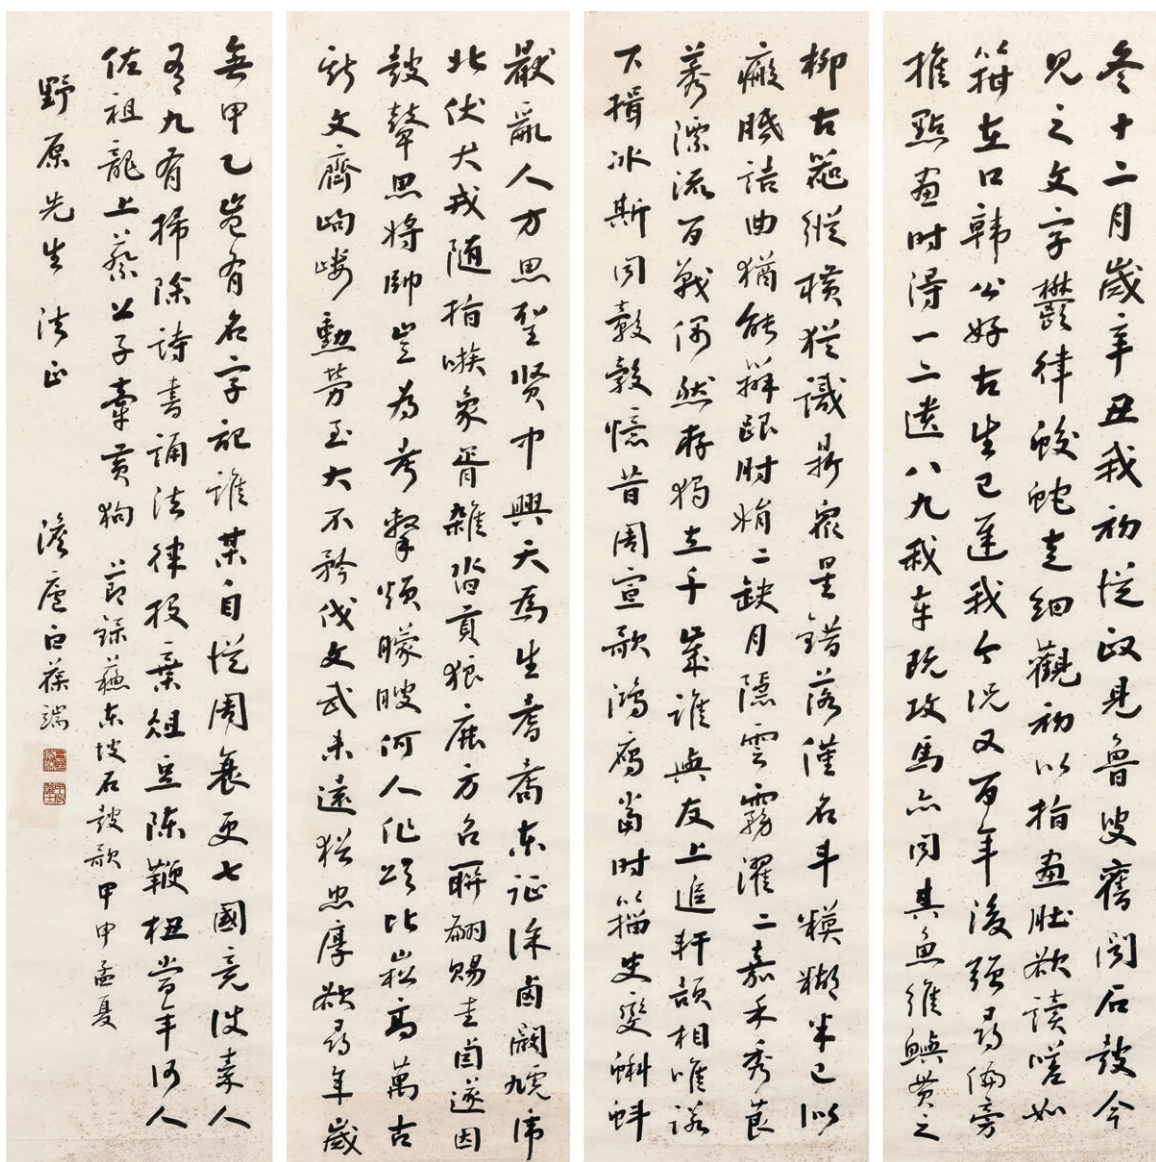 冬十二月歲辛丑我初從政見魯叟舊聞石鼓今
見之文字鬱律蛟蛇走細觀初以指畫肚欲讀嗟如
箝在口韓公好古生已遲我今況又百年後強尋偏旁
推點畫時得一二遺八九我車既攻馬亦同其魚維鱮貫之
柳古器縱橫猶識鼎眾星錯落僅名斗糢糊半已似
瘢胝詰曲猶能辨跟肘娟二缺月隱雲霧濯二嘉禾秀莨
莠漂流百戰偶然存獨立千載誰與友上追軒頡相唯諾
下揖冰斯同鷇㝅憶昔周宣歌鴻雁當時籀史變蝌蚪
厭亂人方思聖賢中興天為生耆耇東征徐鹵闞虓虎
北伏犬戎隨指嗾象胥雜沓貢狼鹿方召聯翩賜圭卣遂因
鼓鼙思將帥豈為考擊煩矇瞍何人作頌比崧高萬古
斯文齊岣嶁勳勞至大不矜伐文武未遠猶忠厚欲尋年歲
無甲乙豈有名字記誰某自從周衰更七國竟使秦人
有九有掃除詩書誦法律投棄俎豆陳鞭杻當年何人
佐祖龍上蔡公子牽黃狗 節錄蘇東坡石鼓歌甲申孟夏
野原先生法正 澹廬白葆端